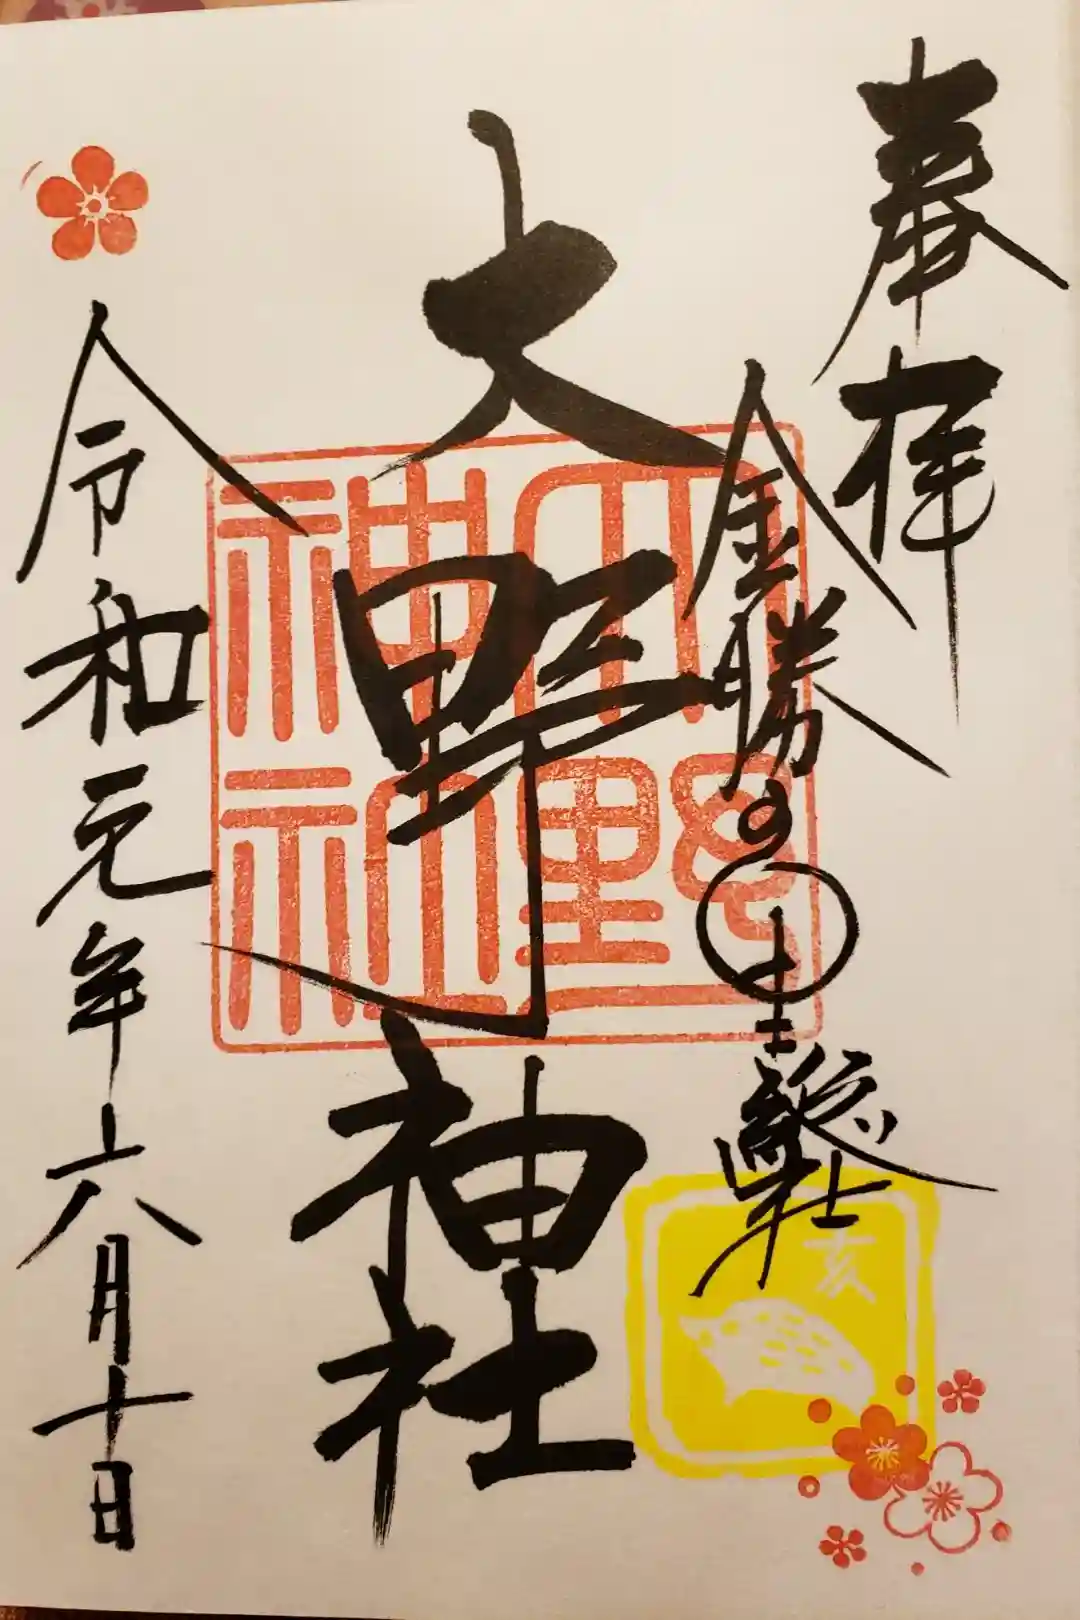 奉拝
金勝の里総社
大野神社
令和元年六月十日
大野
神社
亥